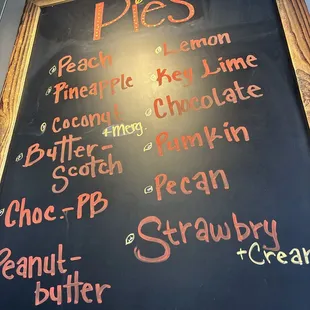 Pies
Peach
Pineapple
Coconut
+Merg.
Butter-
Scotch
Choc.-PB
Peanut-
butter
Lemon
Key Lime
Chocolate
Pumkin
Pecan
Strawbry
+Cream